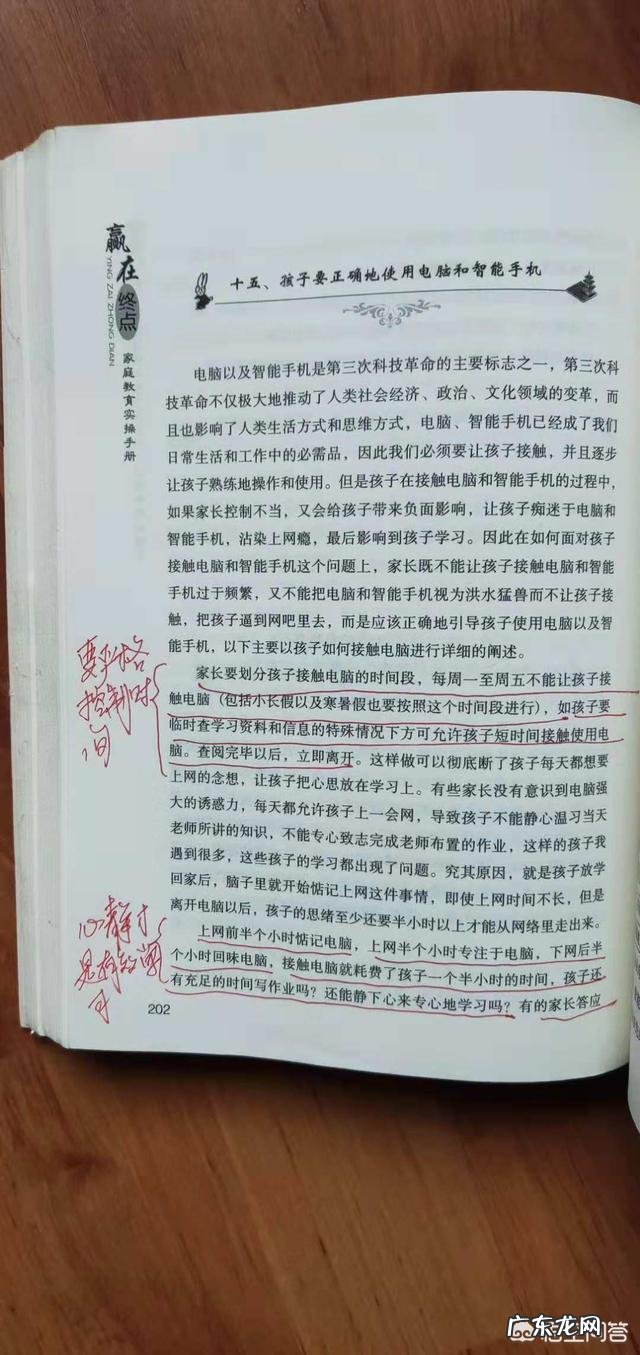 赢在终点
YING ZAI ZHONG DIAN
家庭教育实操手册
十五、孩子要正确地使用电脑和智能手机
电脑以及智能手机是第三次科技革命的主要标志之一，第三次科
技革命不仅极大地推动了人类社会经济、政治、文化领域的变革，而
且也影响了人类生活方式和思维方式，电脑、智能手机已经成了我们
日常生活和工作中的必需品，因此我们必须要让孩子接触，并且逐步
让孩子熟练地操作和使用。但是孩子在接触电脑和智能手机的过程中，
如果家长控制不当，又会给孩子带来负面影响，让孩子痴迷于电脑和
智能手机，沾染上网瘾，最后影响到孩子学习。因此在如何面对孩子
接触电脑和智能手机这个问题上，家长既不能让孩子接触电脑和智能
手机过于频繁，又不能把电脑和智能手机视为洪水猛兽而不让孩子接
触，把孩子逼到网吧里去，而是应该正确地引导孩子使用电脑以及智
能手机，以下主要以孩子如何接触电脑进行详细的阐述。
家长要划分孩子接触电脑的时间段，每周一至周五不能让孩子接
触电脑（包括小长假以及寒暑假也要按照这个时间段进行），如孩子要
临时查学习资料和信息的特殊情况下方可允许孩子短时间接触使用电
脑。查阅完毕以后，立即离开。这样做可以彻底断了孩子每天都想要
上网的念想，让孩子把心思放在学习上。有些家长没有意识到电脑强
大的诱惑力，每天都允许孩子上一会网，导致孩子不能静心温习当天
老师所讲的知识，不能专心致志完成老师布置的作业，这样的孩子我
遇到很多，这些孩子的学习都出现了问题。究其原因，就是孩子放学
回家后，脑子里就开始惦记上网这件事情，即使上网时间不长，但是
离开电脑以后，孩子的思绪至少还要半小时以上才能从网络里走出来。
上网前半个小时惦记电脑，上网半个小时专注于电脑，下网后半
个小时回味电脑，接触电脑就耗费了孩子一个半小时的时间，孩子还
有充足的时间写作业吗？还能静下心来专心地学习吗？有的家长答应
202
要严格
控制时
间
心静才
广东龙网
悟空问答